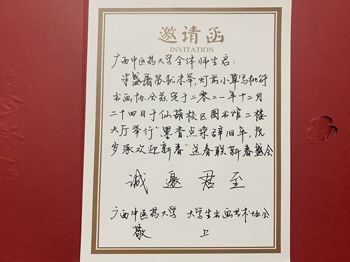 邀请函
INVITATION
广西中医药大学全体师生启:
华盛蕃茂松未举,灯前小草写桃符
书画协会兹定于二零二一年十二月
二十四日于仙葫校区图书馆二楼
大厅举行“墨香点染辞旧年,院
岁承欢迎新春”送春联新春盛会
诚邀君至
广西中医药大学 大学生书画艺术协会
敬 上